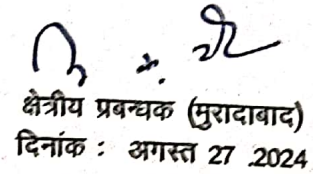 क्षेत्रीय प्रबन्धक (मुरादाबाद)
दिनांक : अगस्त 27 .2024